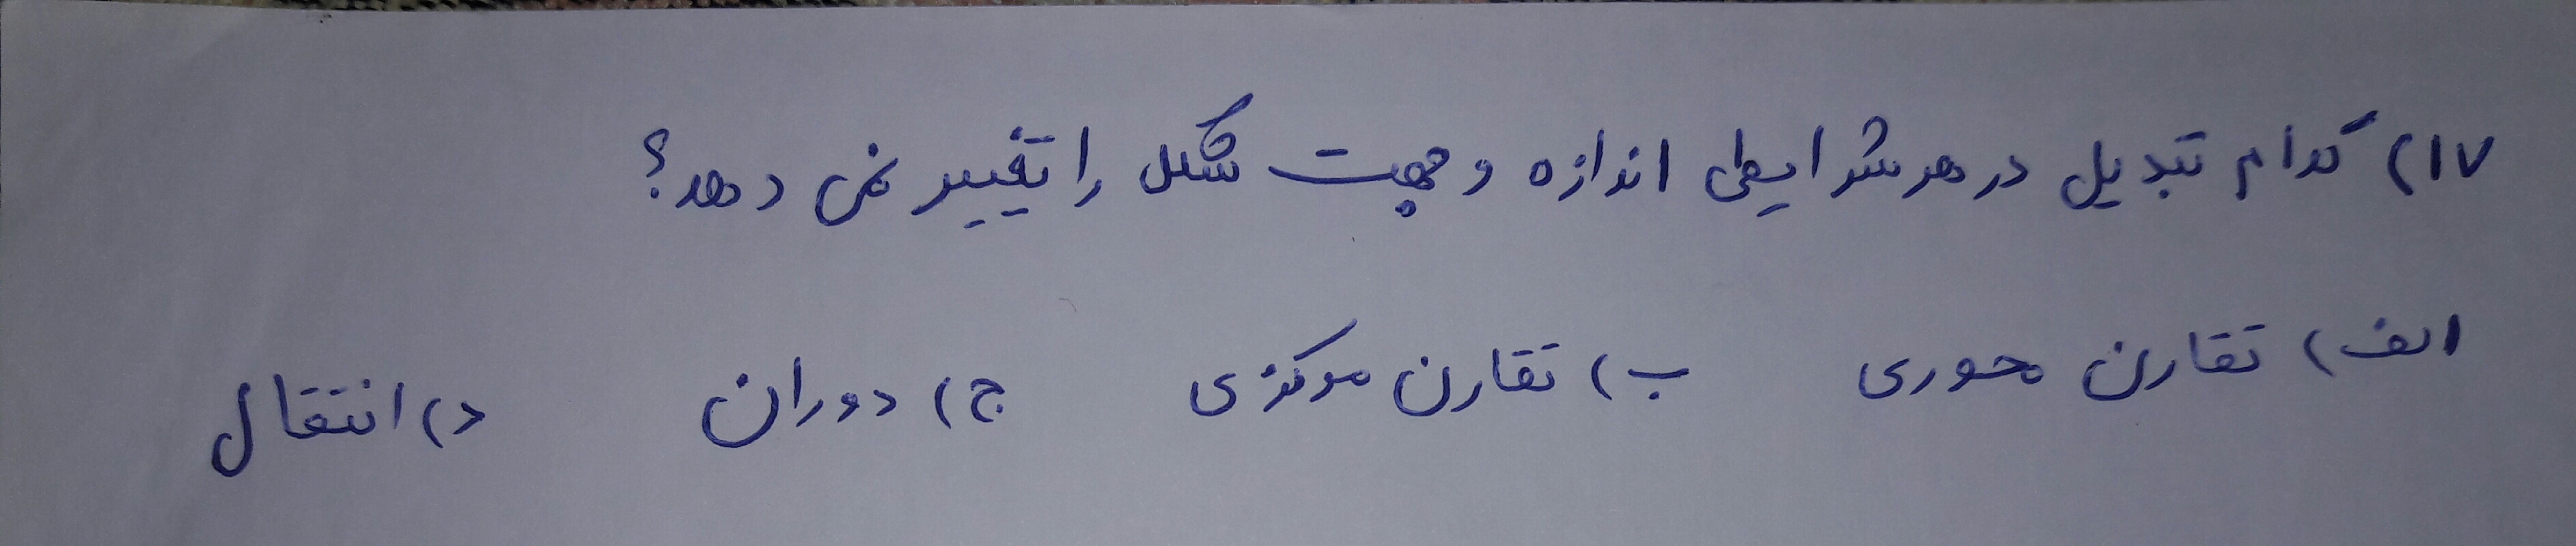 ۱۷) کدام تبدیل در هر شرایطی اندازه و جهت شکل را تغییر نمی دهد؟
الف) تقارن محوری ب) تقارن مرکزی ج) دوران د) انتقال